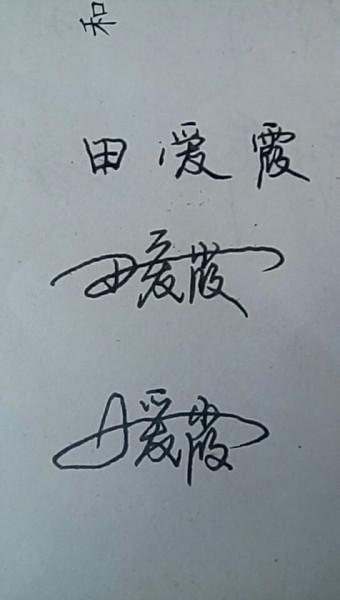 和
田爱霞
田爱霞
田爱霞